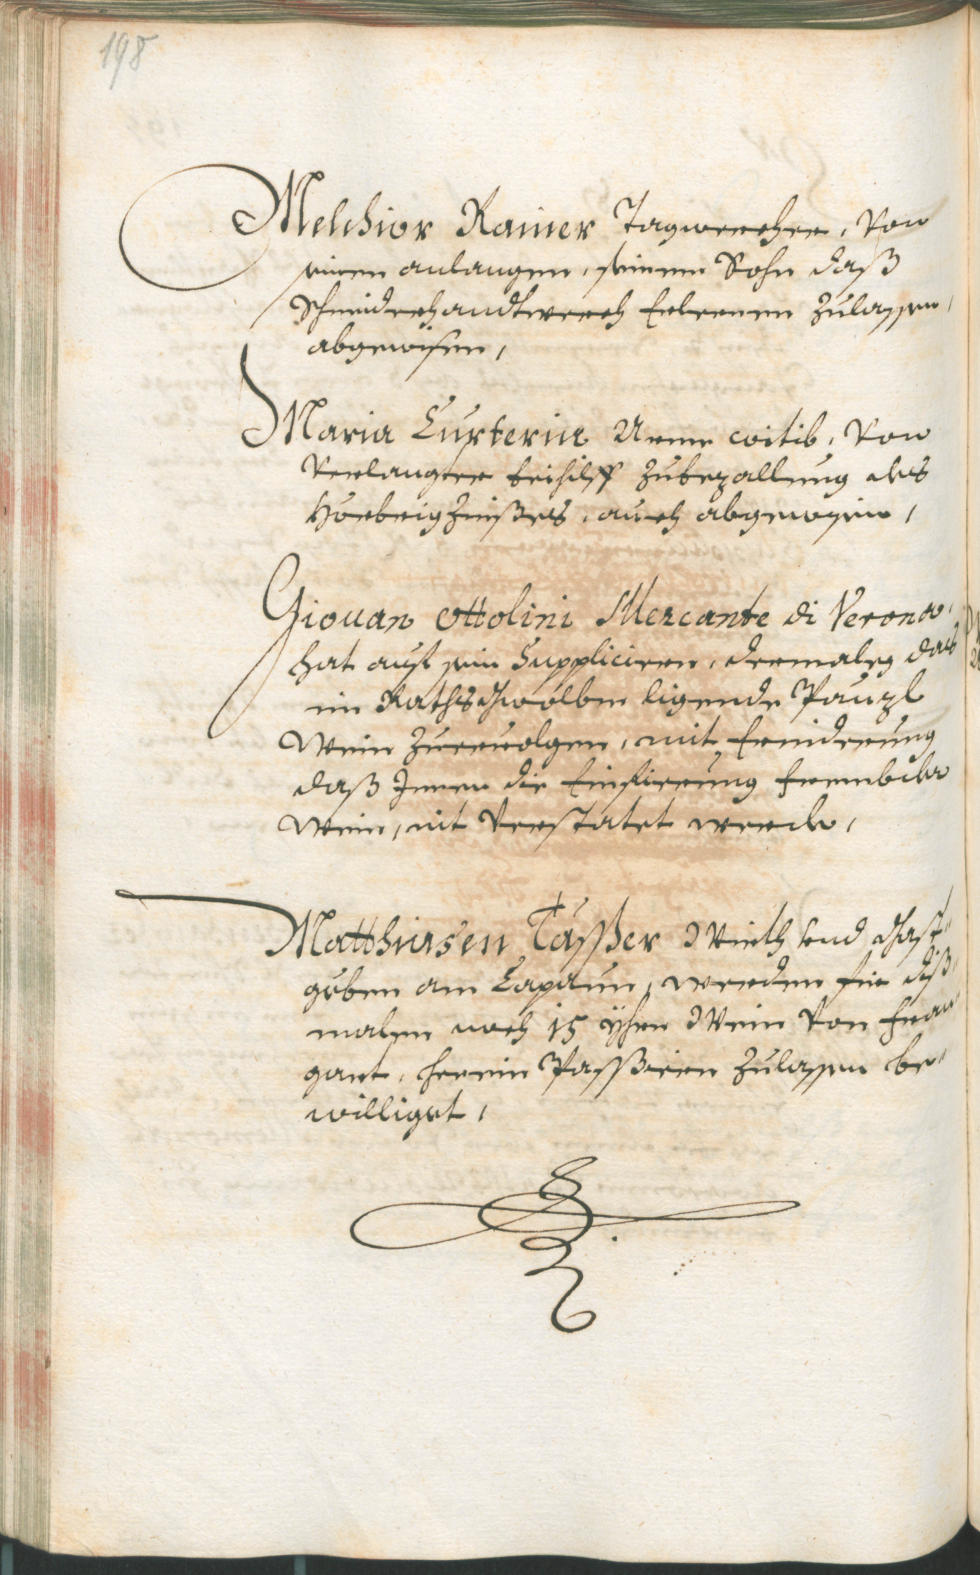 198
Melchior Rainer Tagwercher, von
seinen anlangen, seinem Sohn daß
Schneiderhandtwerch Erlernen zulassen,
abgewisen,
Maria Lurterin Arme witib, von
verlangter beihilff zubezallung des
Hörbrigzinßes, auch abgewisen,
Giouan Ottolini Mercante di Verona,
hat auf sein Suppliciren, dermaleg das
im Rathsgwölben ligende Pänzl
Wein zuervolgen, mit Erinderung
daß Jnnen die Einfierung frembder
Wein, nit verstatet werde,
Matthiasen Tasser Wirth und Gast¬
geben am Capaun, werden für diß¬
malen noch 15 Yhrn Wein von Enn
herein Passieren zulassen be¬
williget,